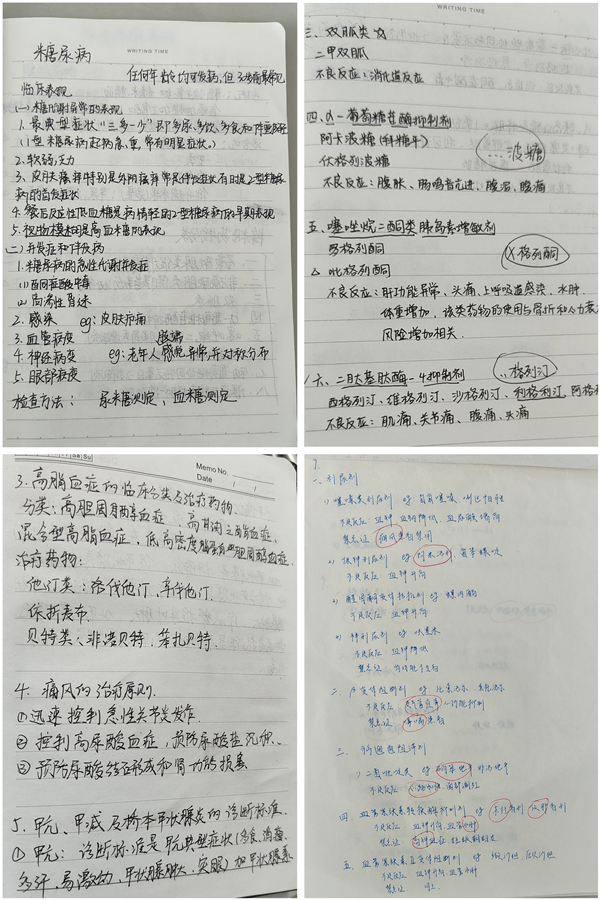 WRITING TIME
糖尿病
任何年龄均可发病,但
临床表现
(一)糖代谢异常的表现
1.最典型症状“三多一少”即多尿、多饮、多食和体重减轻
(1型糖尿病起病急,重,常有明显症状。)
2.软弱,乏力
3.皮肤瘙痒特别是外阴瘙痒常是伴发症状有时是2型糖尿
病的首发症状
4.餐后反应性低血糖是病情轻的2型糖尿病的早期表现
5.视物模糊提高血糖的表现
(二)并发症和伴发病
1.糖尿病的急性代谢并发症
(1)酮症酸中毒
(2)高渗性昏迷
2.感染 eg:皮肤疖痈
3.血管病变 肢端
4.神经病变 eg:老年人感觉异常,并对称分布
5.眼部病变
检查方法: 尿糖测定,血糖测定
WRITING TIME
三、双胍类☆
二甲双胍
不良反应:消化道反应
四、α-葡萄糖苷酶抑制剂
阿卡波糖(拜糖平)
伏格列波糖
...波糖
不良反应:腹胀、肠鸣音亢进、腹泻、腹痛
五、噻唑烷二酮类胰岛素增敏剂
罗格列酮
X格列酮
△ 吡格列酮
不良反应:肝功能异常、头痛、上呼吸道感染、水肿
体重增加,该类药物的使用与骨折和心力衰
风险增加相关.
六、二肽基肽酶-4抑制剂
..格列汀
西格列汀、维格列汀、沙格列汀、利格利汀,阿格
不良反应:肌痛、关节痛、腹痛、头痛
Memo No.
Date / /
3.高脂血症的临床分类及治疗药物
分类:高胆固醇血症,高甘油三酯血症,
混合型高脂血症,低高密度脂蛋白胆固醇血症.
治疗药物:
他汀类:洛伐他汀,辛伐他汀.
依折麦布.
贝特类:非诺贝特.苯扎贝特.
4.痛风的治疗原则.
①迅速控制急性关节炎发作.
②控制高尿酸血症,预防尿酸盐沉积.
③预防尿酸结石形成和肾功的损害
5.甲亢、甲减及桥本甲状腺炎的诊断标准.
①甲亢:诊断标准是甲亢典型症状(多食,消瘦,
多汗,易激动,甲状腺肿大,突眼)加甲状腺素
一、利尿剂
1) 噻嗪类利尿剂
不良反应 血钾
禁忌证 痛风患者禁用
2) 袢利尿剂
不良反应
3) 醛固酮受体拮抗剂 eg 螺内酯
不良反应 血钾升高
不良反应 血钾
禁忌证
二、β受体阻断剂 eg
不良反应
禁忌证 哮喘患者
三、钙通道阻滞剂
1) 二氢吡啶类 eg
不良反应
四、血管紧张素转换酶抑制剂 eg 卡托普利
不良反应
禁忌证 高钾血症
五、血管紧张素Ⅱ受体阻断剂 eg
不良反应 血钾升高
禁忌证 同上